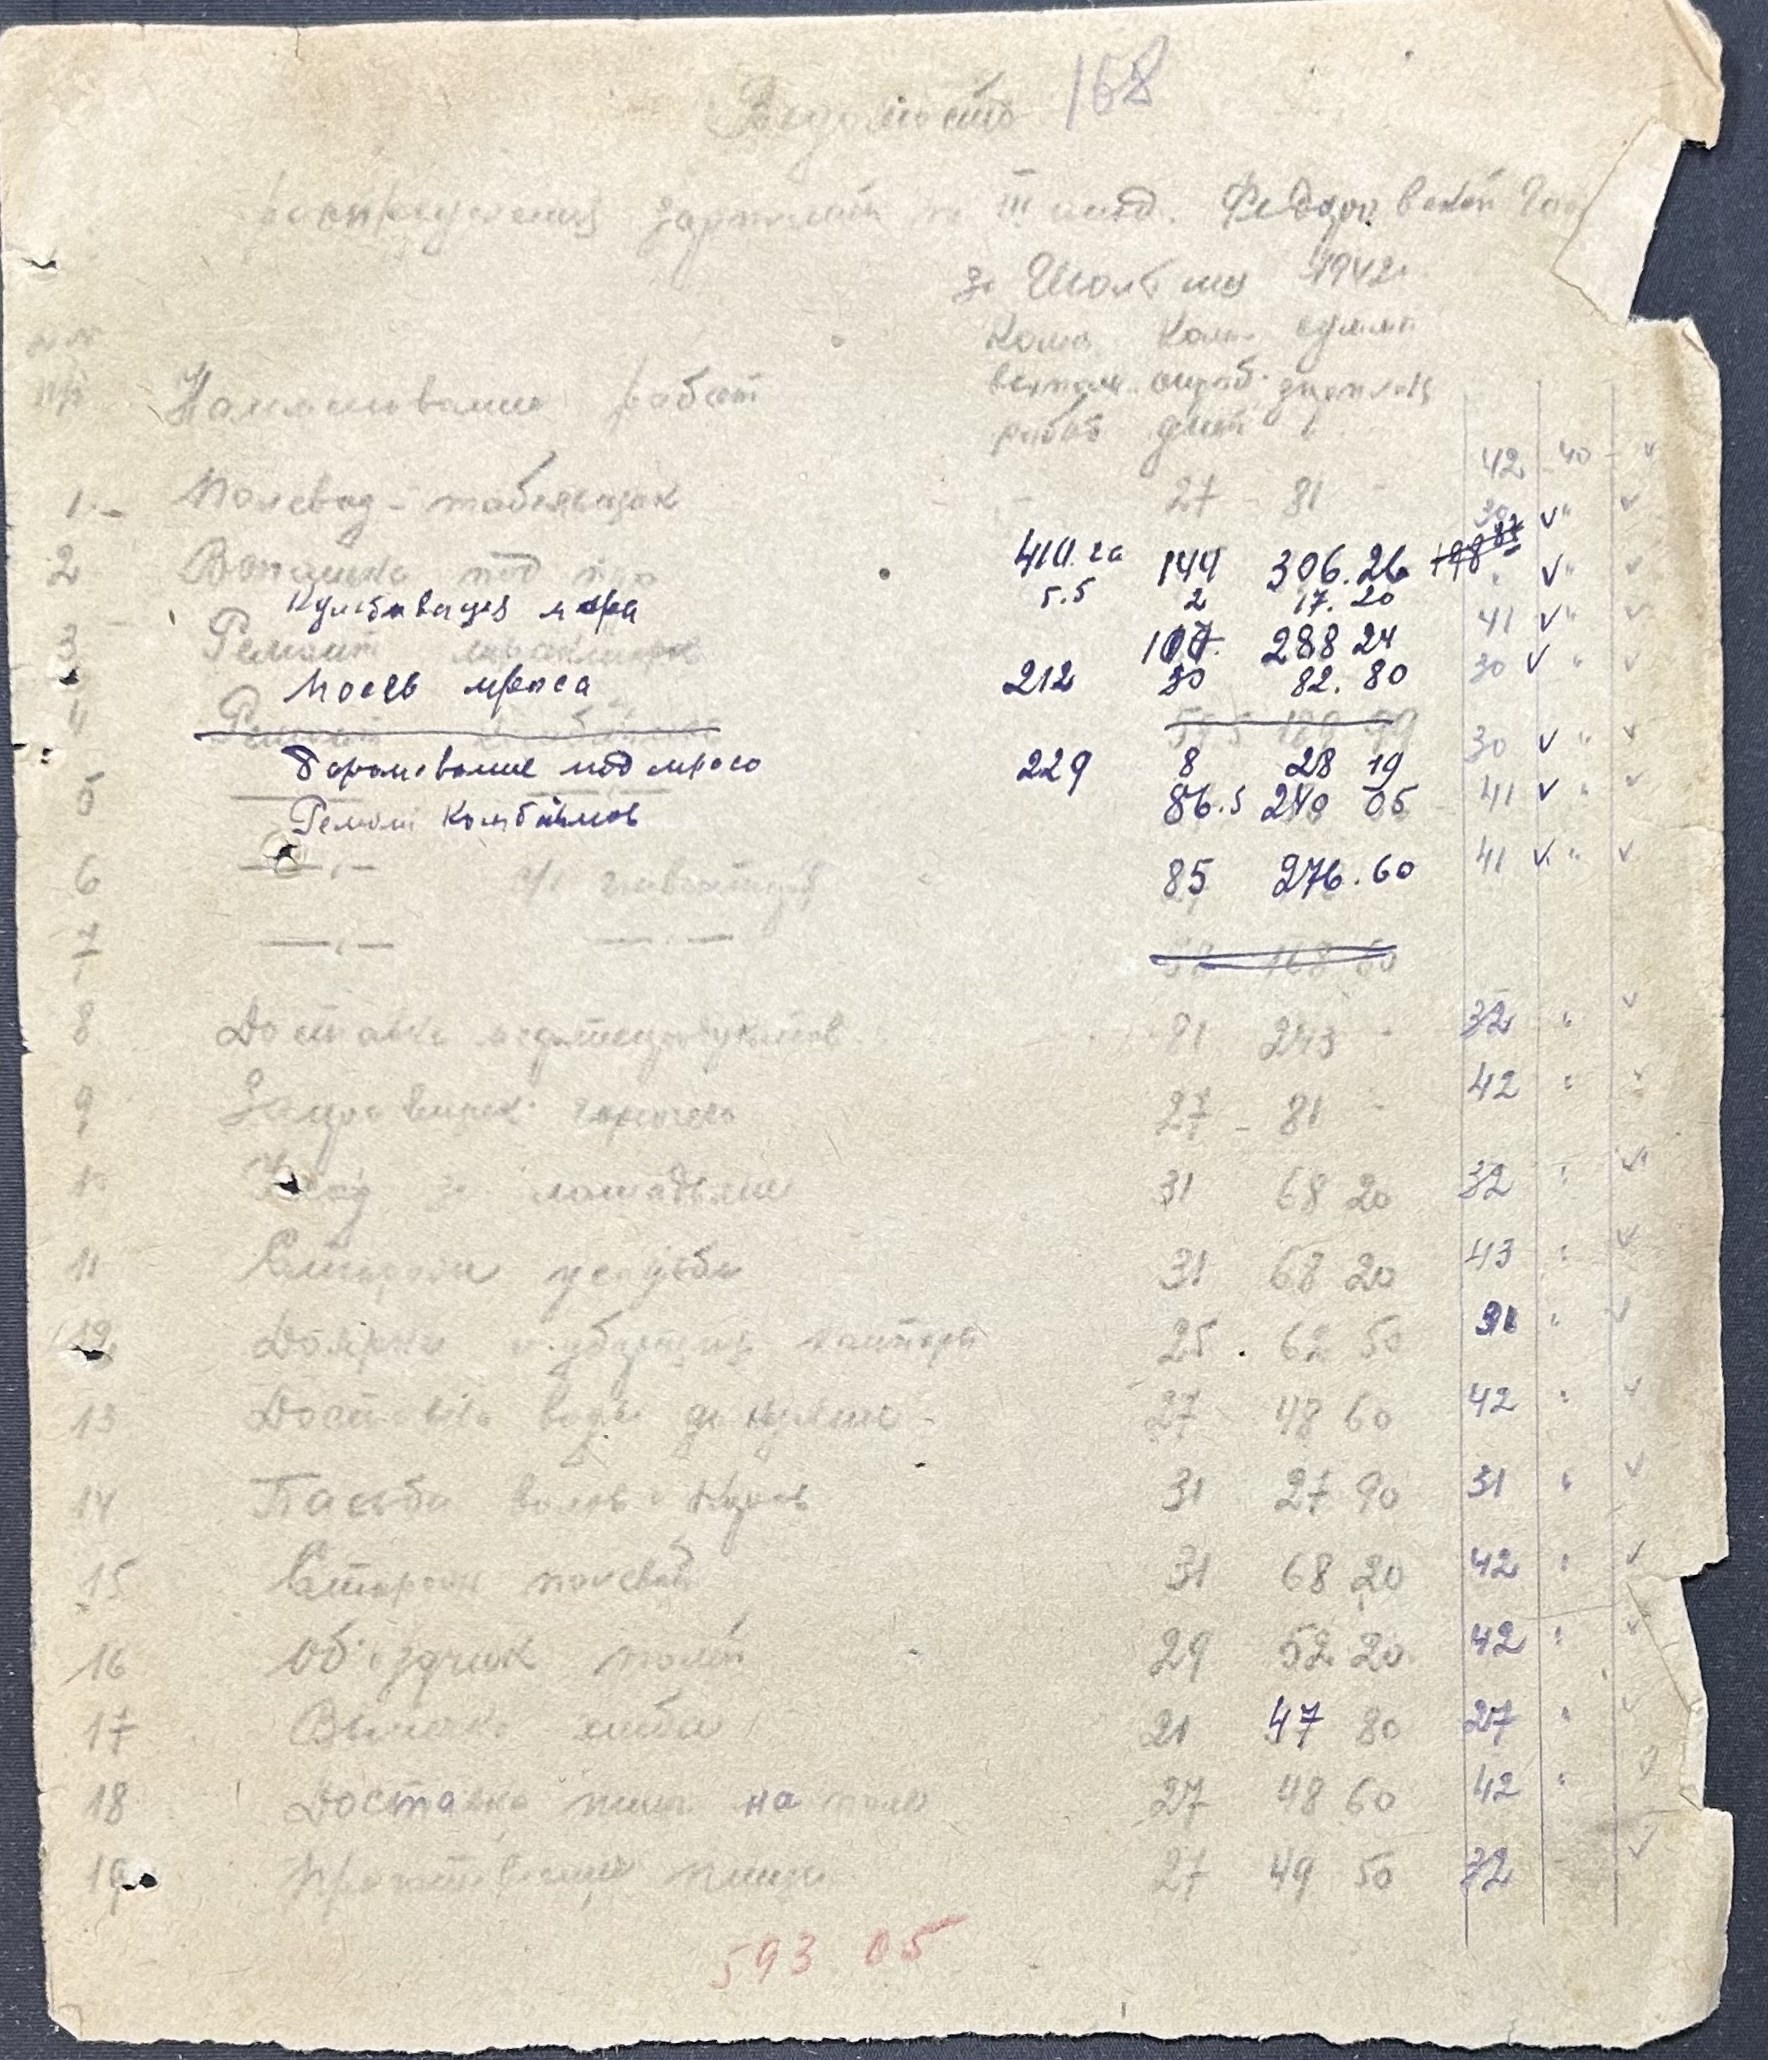 Ведомость 158
распределения зарплаты по III отд. Федоровской
за Июль м-ц 1942 г.
№№ Колич. Колич. сумма
п/п Наименование работ выполн. отраб. зарплаты
работ дней
42 - 40 - v
1. Полевод - табельщик - 27 - 81 - 30 v " v
2 Вспашка под 410. га 144 306. 26 v " v
Культивация 5.5 2 17. 20
3 Ремонт тракторов 107 288 24 41 v " v
Посев проса 212 30 82. 80 30 v " v
4 Ремонт
Боронование под просо 229 8 28 19 30 v " v
5 Ремонт комбайнов 86.5 240 05 41 v " v
6 —„— 85 276. 60 41 v " v
7 —„— —„— 168 60
8 Доставка нефтепродуктов 81 243 - 32 " v
9 Заправщик горючего 27 - 81 - 42 " v
10 Уход за лошадьми 31 68 20 32 " v
11 Сторожа усадьбы 31 68 20 43 " v
12 Доярки и уборщица конторы 25 . 62 50 31 " v
13 Доставка воды 27 48 60 42 " v
14 Пастьба волов и коров 31 27 90 31 " v
15 Сторож полевой 31 68 20 42 " v
16 Объездчик полей 29 52 20 42 " v
17 Выпечка хлеба 21 47 80 27 " v
18 Доставка пищи на поле 27 48 60 42 " v
19 пищи 27 49 50 32 v
593 05